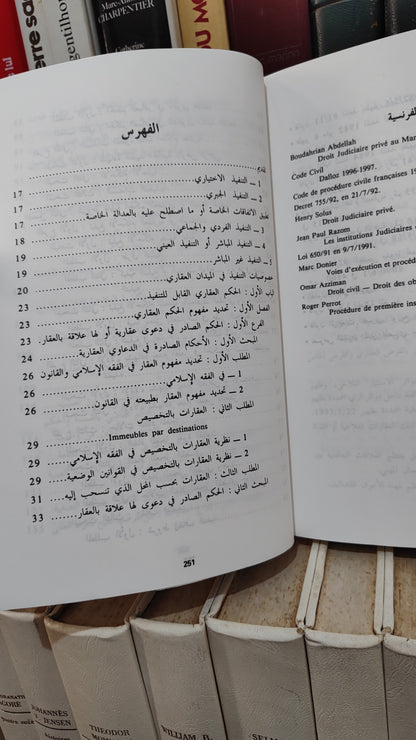 الفهرس
تقديم
1 ـ التنفيذ الاختياري 17
2 ـ التنفيذ الجبري 17
تطبيق الاتفاقات الخاصة أو ما اصطلح عليه بالعدالة الخاصة 17
3 ـ التنفيذ الفردي والجماعي 18
4 ـ التنفيذ المباشر أو التنفيذ العيني 19
5 ـ التنفيذ غير المباشر 19
خصوصيات التنفيذ في الميدان العقاري 20
الباب الأول : الحكم العقاري القابل للتنفيذ 23
الفصل الأول : تحديد مفهوم الحكم العقاري 23
الفرع الأول : الحكم الصادر في دعوى عقارية أو لها علاقة بالعقار 23
المبحث الأول : الأحكام الصادرة في الدعاوي العقارية 24
المطلب الأول : تحديد مفهوم العقار في الفقه الإسلامي والقانون 26
1 ـ في الفقه الإسلامي 26
2 ـ تحديد مفهوم العقار بطبيعته في القانون 26
المطلب الثاني : العقارات بالتخصيص
Immeubles par destinations 29
1 ـ نظرية العقارات بالتخصيص في الفقه الإسلامي 29
2 ـ نظرية العقارات بالتخصيص في القوانين الوضعية 29
المطلب الثالث : العقارات بحسب المحل الذي تنسحب إليه 31
المبحث الثاني : الحكم الصادر في دعوى لها علاقة بالعقار 33
251
الفرنسية
Boudahrian Abdellah
Droit Judiciaire privé au Mar
Code Civil
Dalloz 1996-1997.
Code de procédure civile française 19
Decret 755/92, en 21/7/92.
Henry Solus
Droit Judiciaire privé.
Jean Paul Razom
Les institutions Judiciaires
Loi 650/91 en 9/7/1991.
Marc Donier
Voies d'exécution et procéd
Omar Azziman
Droit civil — Droit des ob
Roger Perrot
Procédure de première ins
CHARPENTIER
Catherine
gentilhom
THEODOR
WILLIAM B.
JOHANNÈS
JENSEN